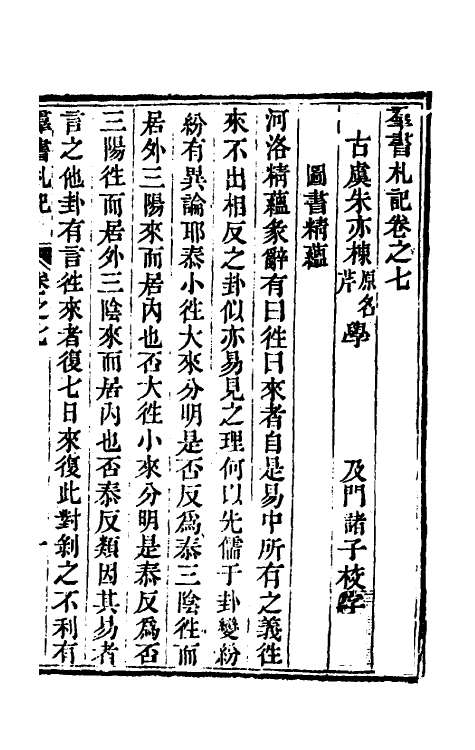 羣書札記卷之七
古虞朱亦棟原名芹學　及門諸子校字
圖書精蘊
河洛精蘊彖辭有曰徃曰來者自是易中所有之義徃
來不出相反之卦似亦易見之理何以先儒于卦變紛
紛有異論耶泰小徃大來分明是否反爲泰三陰徃而
居外三陽來而居內也否大徃小來分明是泰反爲否
三陽徃而居外三陰來而居內也否泰反類因其易者
言之他卦有言徃來者復七日來復此對剝之不利有
羣書札記　卷之七　一